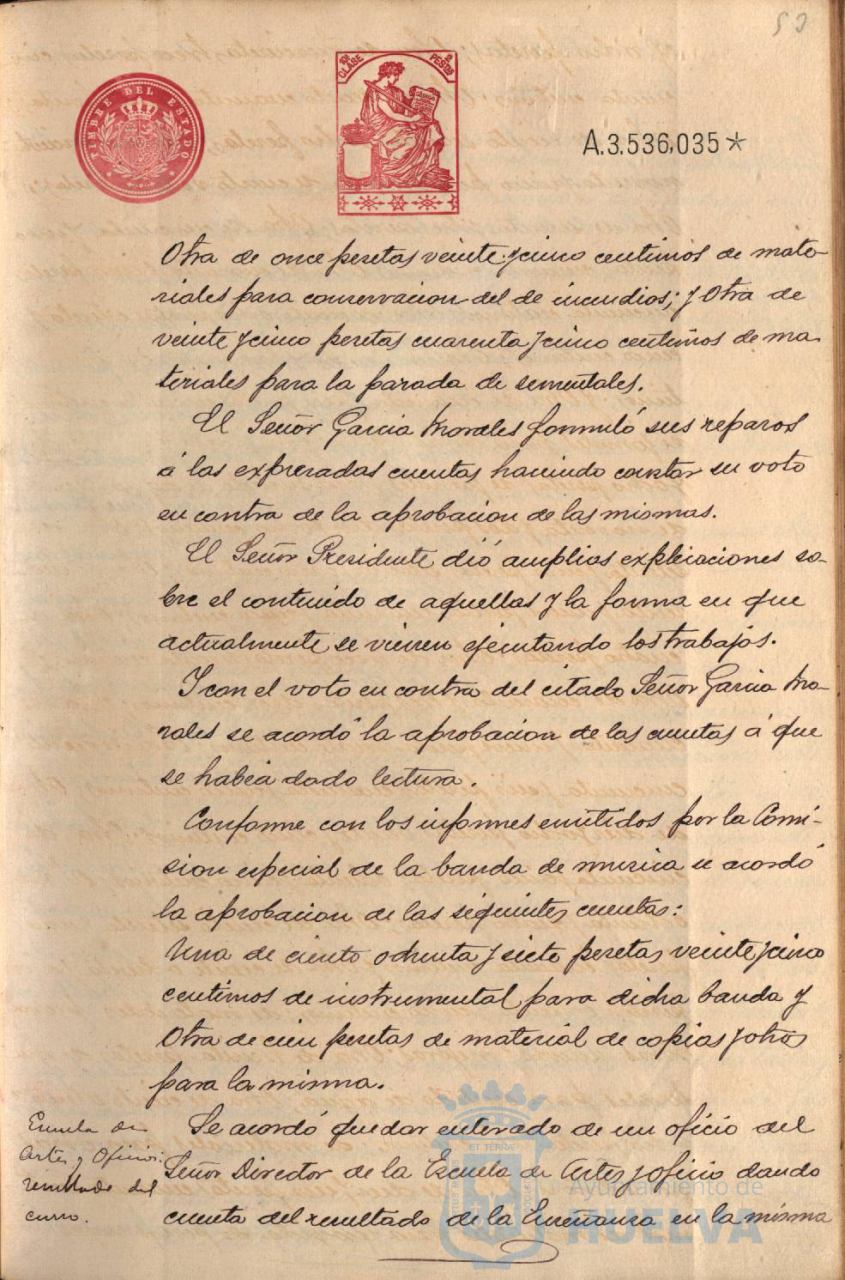 53
TIMBRE DEL ESTADO
CLASE
PESETAS
A.3.536,035*
Otra de once pesetas veinte y cinco centimos de mate-
riales para conservacion del de incendios; y Otra de
veinte y cinco pesetas cuarenta y cinco centimos de ma-
teriales para la parada de sementales.
El Señor Garcia Morales formuló sus reparos
á las expresadas cuentas haciendo constar su voto
en contra de la aprobacion de las mismas.
El Señor Presidente dió amplias explicaciones so-
bre el contenido de aquellas y la forma en que
actualmente se vienen ejecutando los trabajos.
Y con el voto en contra del citado Señor Garcia Mo-
rales se acordó la aprobacion de las cuentas á que
se habia dado lectura.
Conforme con los informes emitidos por la Comi-
sion especial de la banda de musica se acordó
la aprobacion de las siguientes cuentas:
Una de ciento ochenta y siete pesetas veinte y cinco
centimos de instrumental para dicha banda y
Otra de cien pesetas de material de copias y otros
para la misma.
Escuela de
Artes y Oficios:
resultado del
curso.
Se acordó quedar enterado de un oficio del
Señor Director de la Escuela de Artes y Oficio dando
cuenta del resultado de la Enseñanza en la misma
Ayuntamiento de
HUELVA